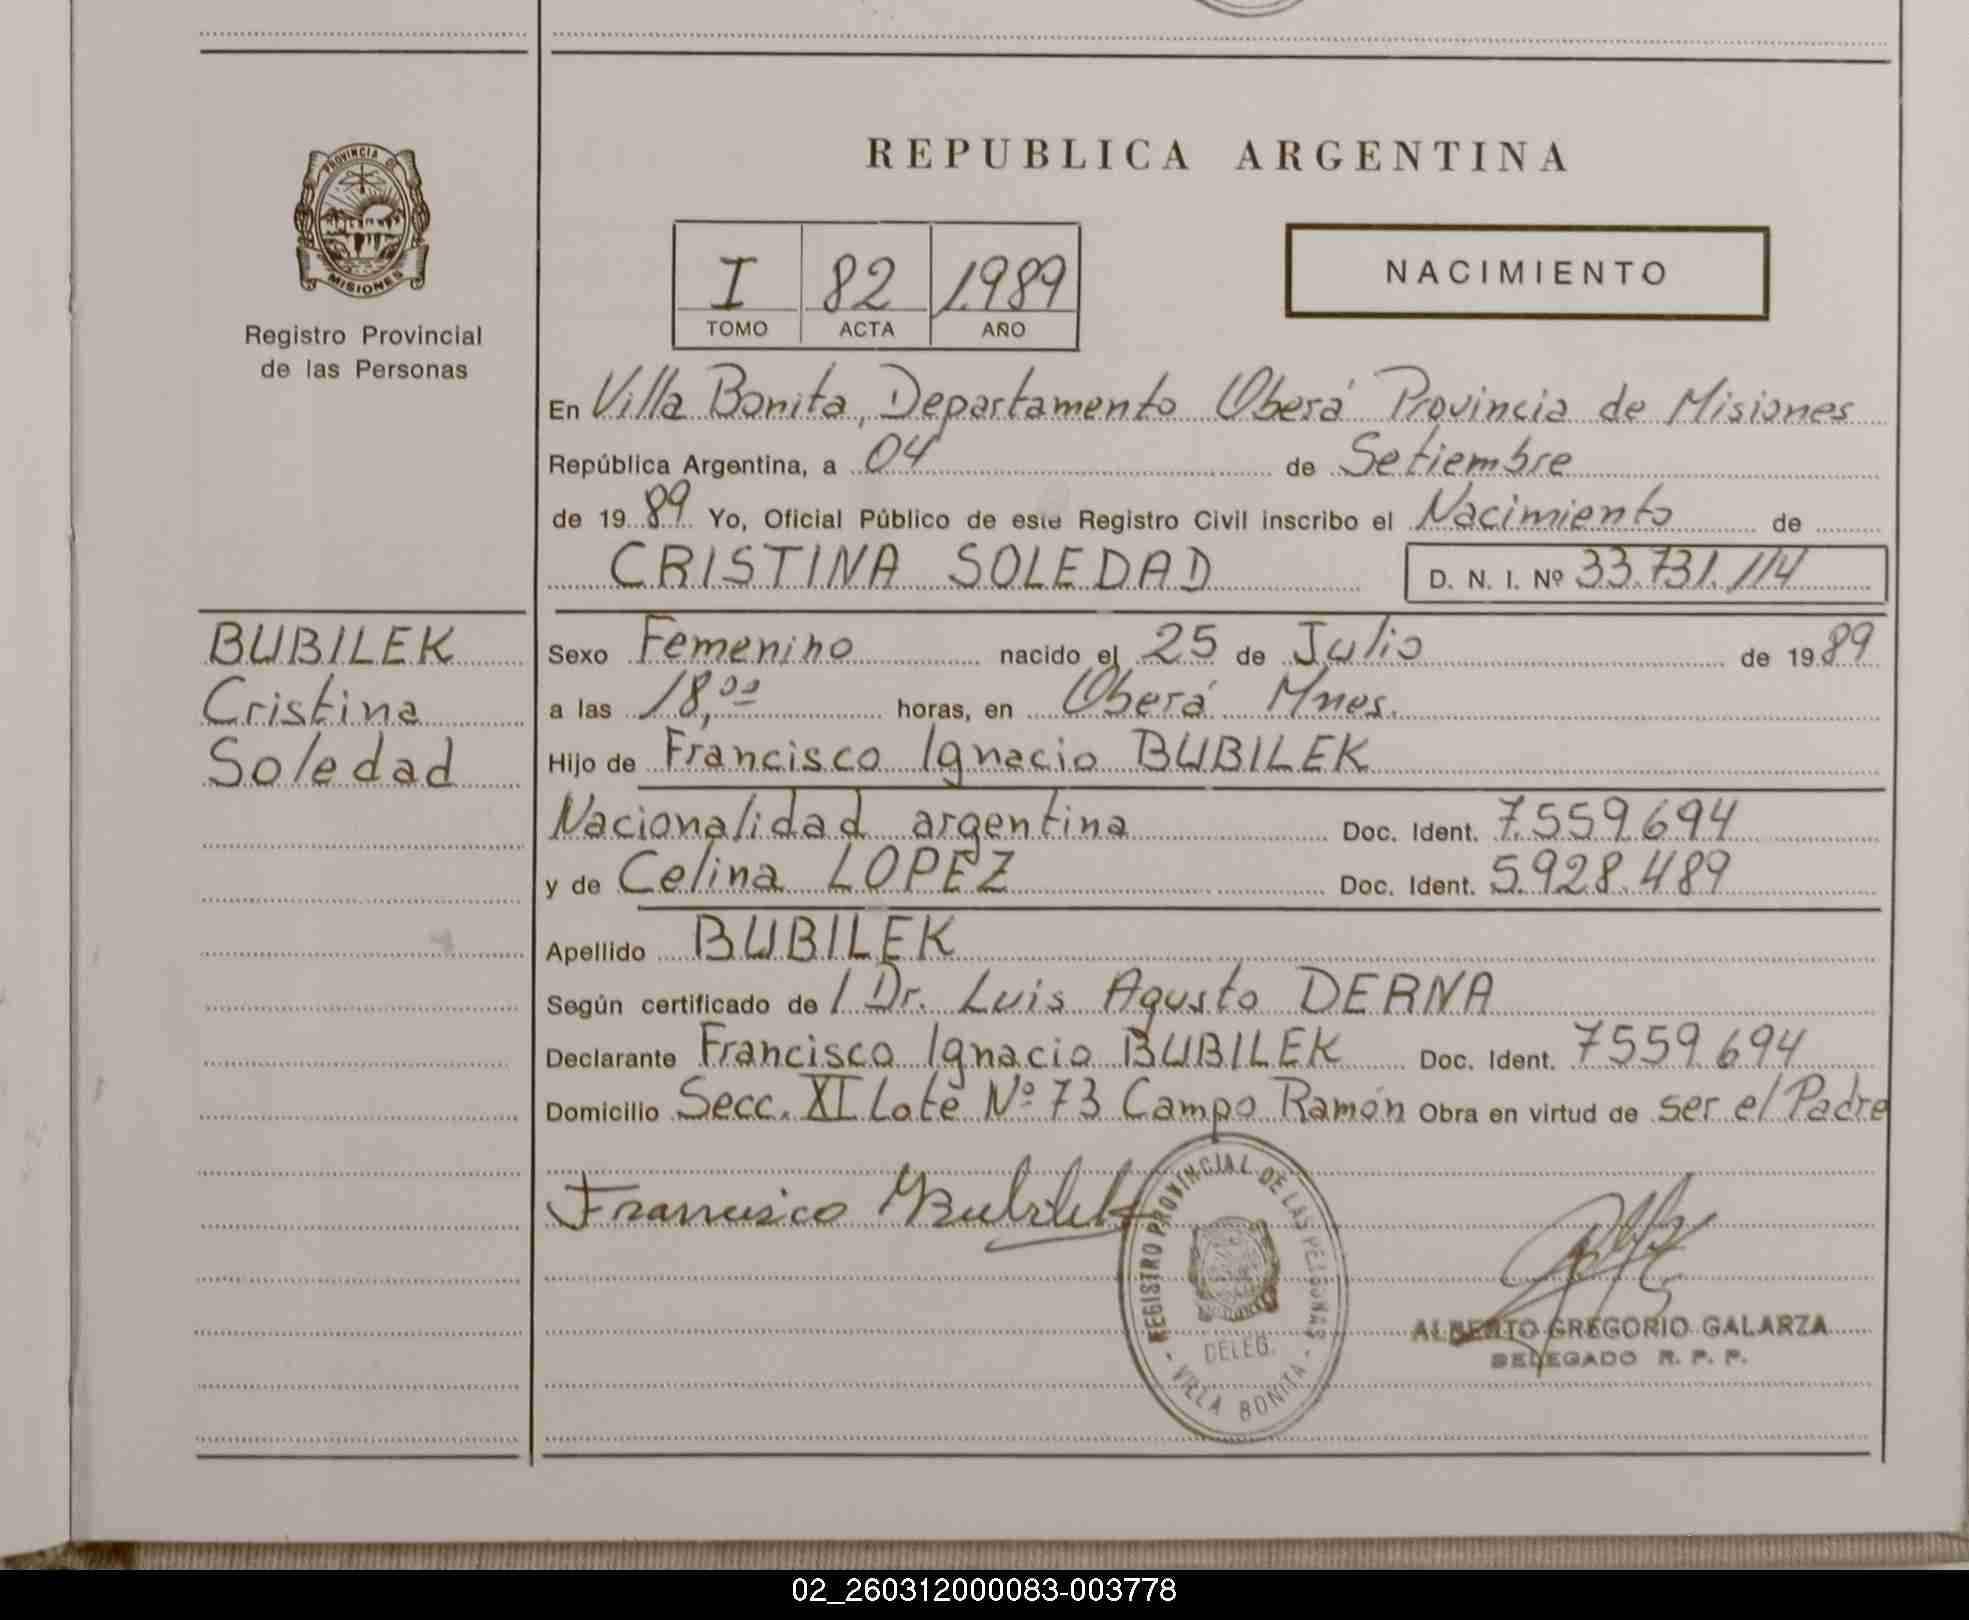 PROVINCIA DE
MISIONES
Registro Provincial
de las Personas
BUBILEK
Cristina
Soledad
REPUBLICA ARGENTINA
I 82 1989
TOMO ACTA AÑO
NACIMIENTO
En Villa Bonita, Departamento Oberá Provincia de Misiones
República Argentina, a 04 de Setiembre
de 19 89 Yo, Oficial Público de este Registro Civil inscribo el Nacimiento de
CRISTINA SOLEDAD D. N. I. Nº 33.731.114
Sexo Femenino nacido el 25 de Julio de 19 89
a las 18,00 horas, en Oberá Mnes.
Hijo de Francisco Ignacio BUBILEK
Nacionalidad argentina Doc. Ident. 7.559.694
y de Celina LOPEZ Doc. Ident. 5.928.489
Apellido BUBILEK
Según certificado de l Dr. Luis Agusto DERNA
Declarante Francisco Ignacio BUBILEK Doc. Ident. 7559.694
Domicilio Secc. XI Lote Nº 73 Campo Ramón Obra en virtud de ser el Padre
Francisco Bubilek
REGISTRO PROVINCIAL DE LAS PERSONAS
DELEG.
- VILLA BONITA -
ALBERTO GREGORIO GALARZA
DELEGADO R. P. P.
02_260312000083-003778